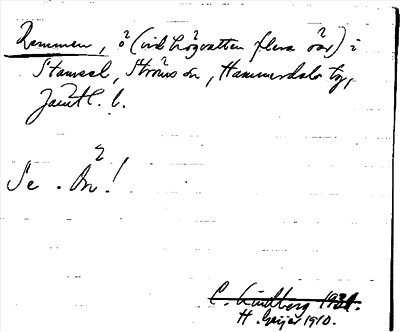 Rammen, ö (vid högvatten flera öar) i
Stamsel, Ströms sn, Hammerdals tg,
Jämtl. l.
Se . Ön!
C. Lindberg 1931.
H. Geijer 1910.